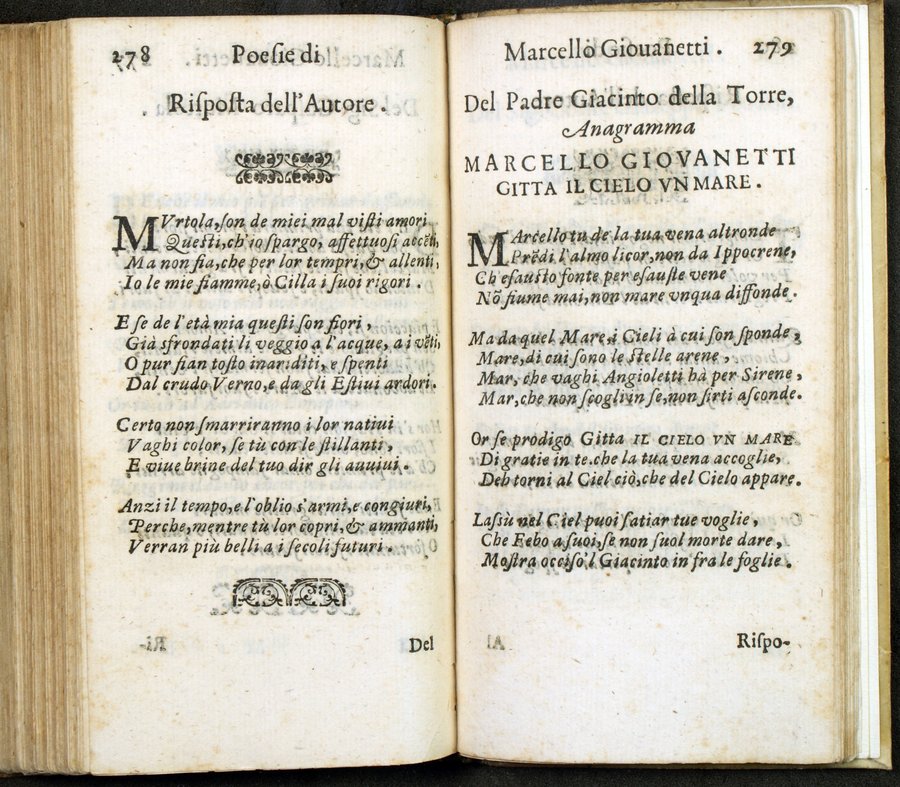 278 Poesie di
Risposta dell'Autore.
MVrtola, son de miei mal visti amori
Questi, ch'io spargo, affettuosi accēti,
Ma non fia, che per lor tempri, & allenti,
Io le mie fiamme, ò Cilla i suoi rigori.
E se de l'età mia questi son fiori,
Già sfrondati li veggio a l'acque, a i vēti,
O pur sian tosto inariditi, e spenti
Dal crudo Verno, e da gli Estiui ardori.
Certo non smarriranno i lor natiui
Vaghi color, se tù con le stillanti,
E viue brine del tuo dir gli auuiui.
Anzi il tempo, e l'oblio s'armi, e congiuri,
Perche, mentre tù lor copri, & ammanti,
Verran più belli a i secoli futuri.
Del
Marcello Giouanetti. 279
Del Padre Giacinto della Torre,
Anagramma
MARCELLO GIOVANETTI
GITTA IL CIELO VN MARE.
MArcello tu de la tua vena altronde
Prēdi l'almo licor, non da Ippocrene,
Ch'esausto fonte per esauste vene
Nō fiume mai, non mare vnqua diffonde.
Ma da quel Mare, i Cieli à cui son sponde,
Mare, di cui sono le stelle arene,
Mar, che vaghi Angioletti hà per Sirene,
Mar, che non scogli in se, non sirti asconde.
Or se prodigo Gitta IL CIELO VN MARE
Di gratie in te. che la tua vena accoglie,
Deh torni al Ciel ciò, che del Cielo appare.
Lassù nel Ciel puoi satiar tue voglie,
Che Febo a suoi, se non suol morte dare,
Mostra occiso 'l Giacinto in fra le foglie.
Rispo-